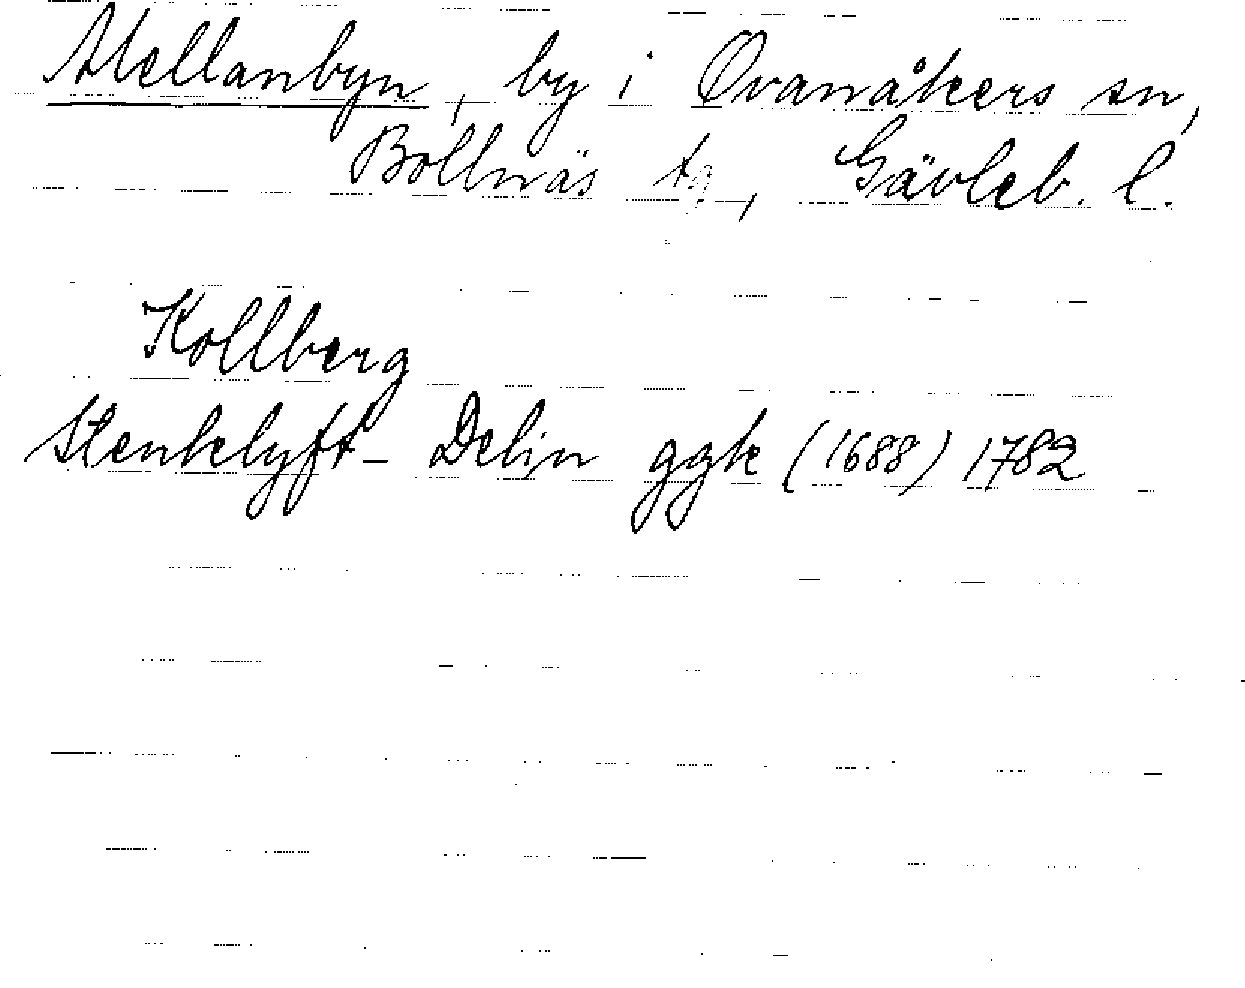 Mellanbyn, by i Ovanåkers sn,
Bollnäs tg, Gävleb. l.
Kollberg
Stenklyft - Delin ggk (1688) 1782